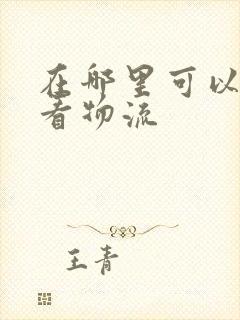 在哪里可以
看物流
王青